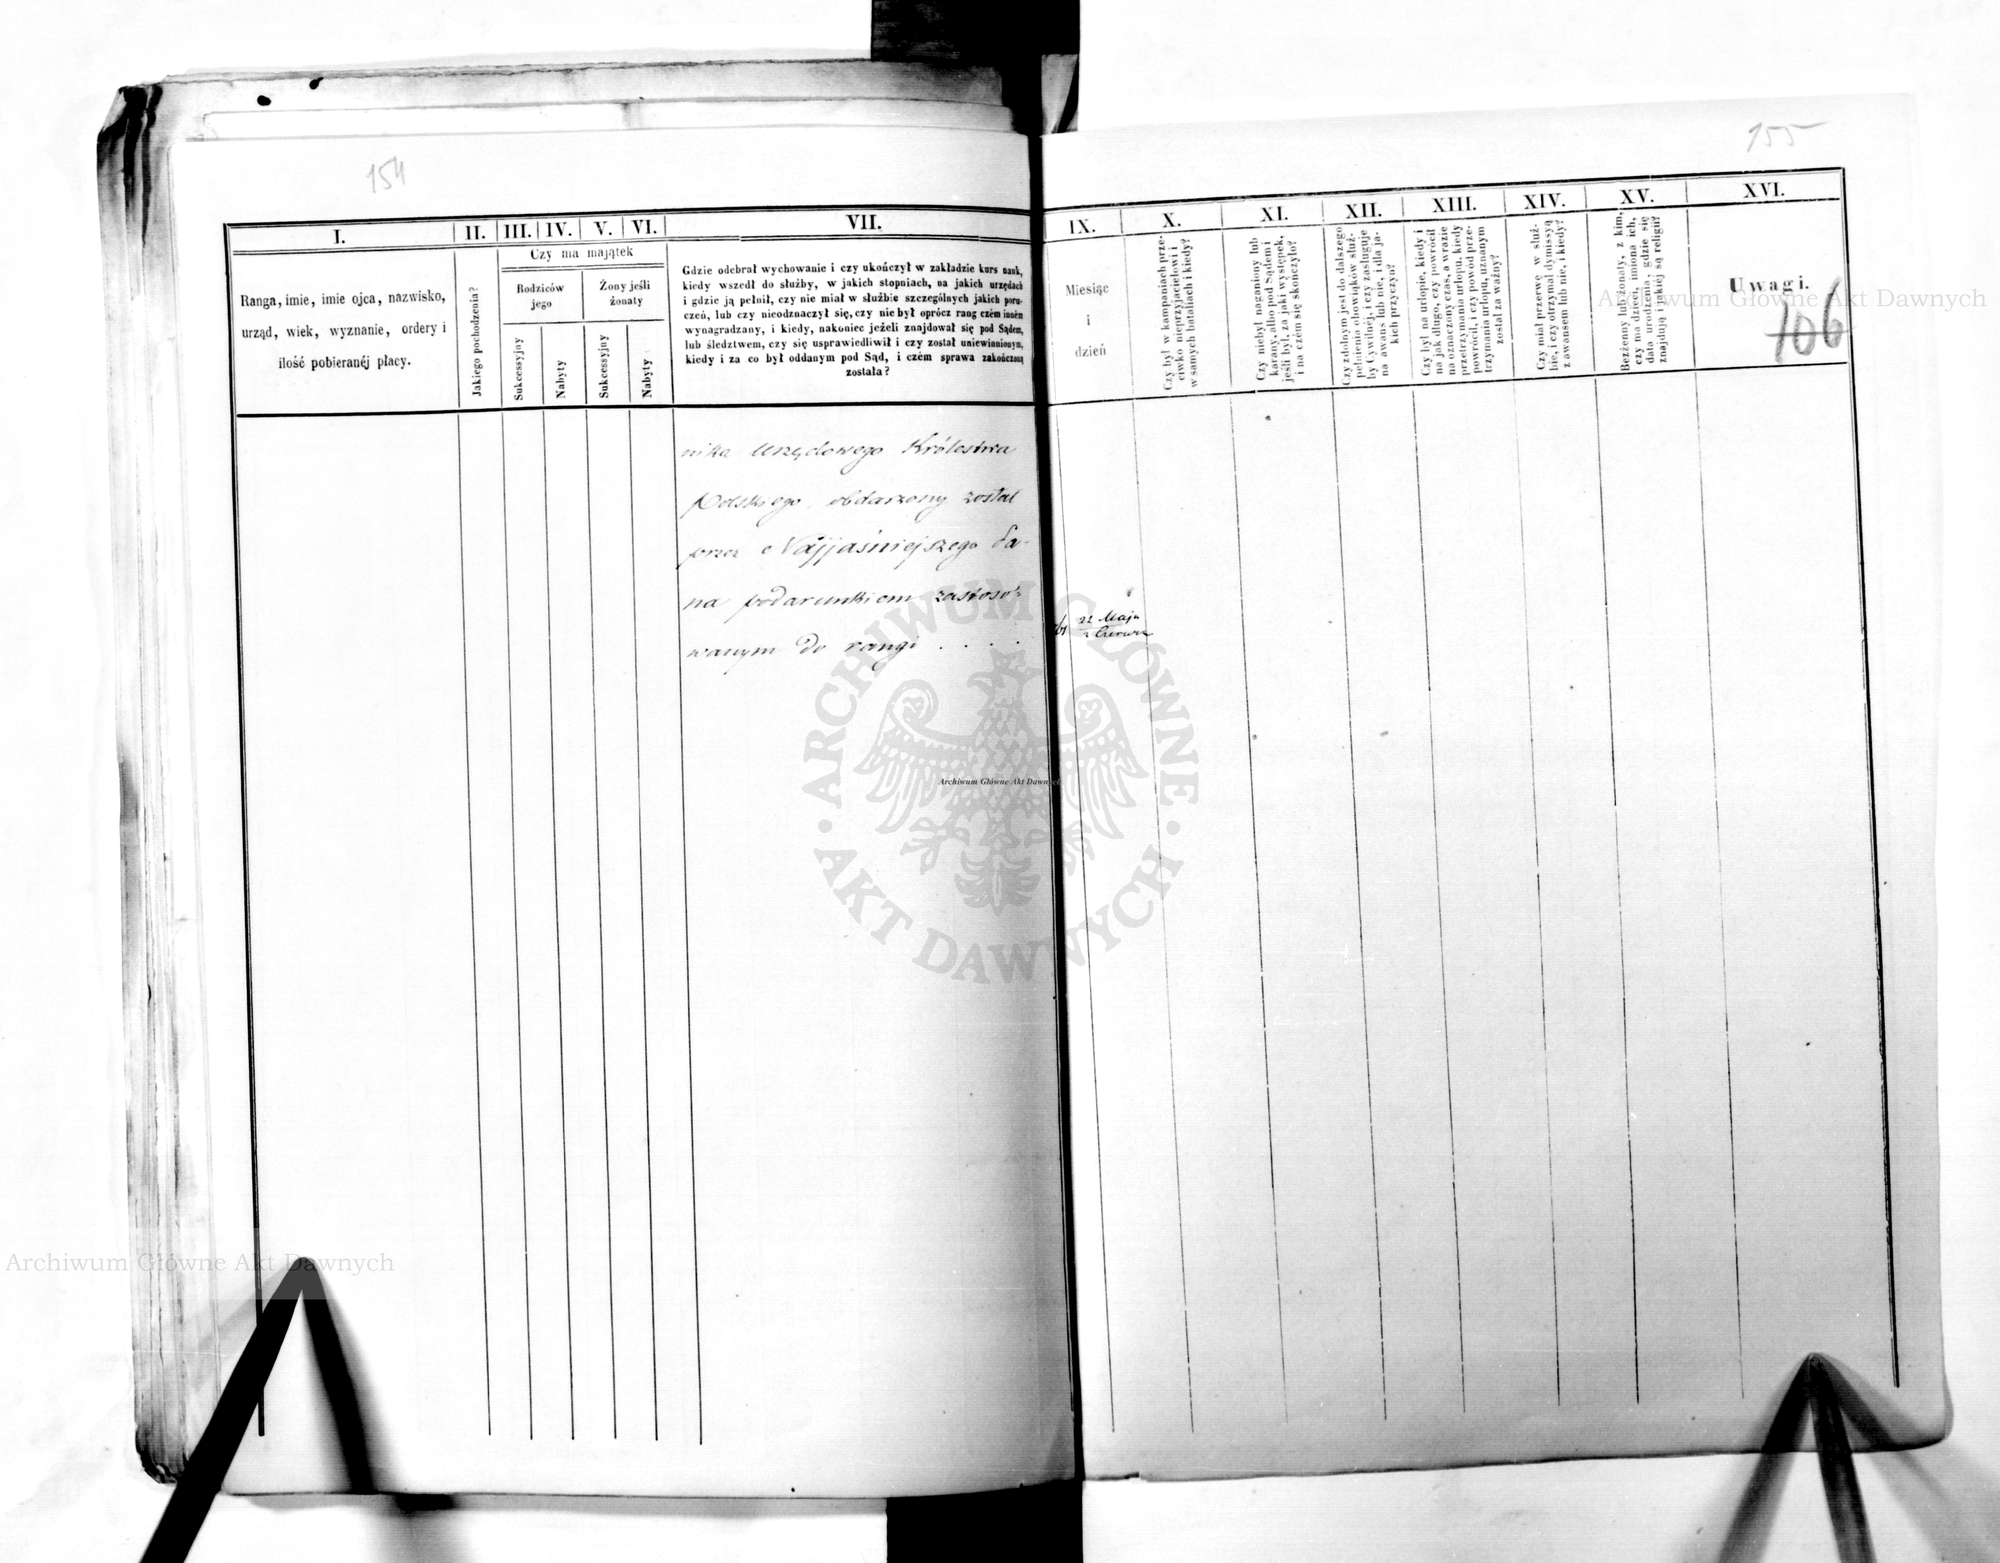 154
I.
II.
III.
IV.
V.
VI.
VII.
Czy ma majątek
Rodziców
jego
Żony jeśli
żonaty
Ranga, imie, imie ojca, nazwisko,
urząd, wiek, wyznanie, ordery i
ilość pobieranéj płacy.
Jakiego pochodzenia?
Sukcessyjny
Nabyty
Sukcessyjny
Nabyty
Gdzie odebrał wychowanie i czy ukończył w zakładzie kurs nauk,
kiedy wszedł do służby, w jakich stopniach, na jakich urzędach
i gdzie ją pełnił, czy nie miał w służbie szczególnych jakich poru-
czeń, lub czy nieodznaczył się, czy nie był oprócz rang czém inném
wynagradzany, i kiedy, nakoniec jeżeli znajdował się pod Sądem,
lub śledztwem, czy się usprawiedliwił i czy został uniewinnionym,
kiedy i za co był oddanym pod Sąd, i czém sprawa zakończoną
została?
nika Urzędowego Królestwa
Polskiego, obdarzony został
przez Najjaśniejszego Pa-
na podarunkiem zastoso-
wanym do rangi . . . .
155
IX.
X.
XI.
XII.
XIII.
XIV.
XV.
XVI.
Miesiąc
i
dzień
Czy był w kampaniach prze-
ciwko nieprzyjacielowi i
w samych bataliach i kiedy?
Czy niebył naganiony lub
karany, albo pod Sądem i
jeśli był, za jaki występek,
i na czem się skończyło?
Czy zdolnym jest do dalszego
pełnienia obowiąków służ-
by Cywilnej, i czy zasługuje
na awans lub nie, i dla ja-
kich przyczyn?
Czy był na urlopie, kiedy i
na jak długo, czy powrócił
na oznaczony czas, a w razie
przetrzymania urlopu, kiedy
powrócił, i czy powód prze-
trzymania urlopu, uznanym
został za ważny?
Czy miał przerwę w służ-
bie, i czy otrzymał dymissyą
z awansem lub nie, i kiedy?
Bezżenny lub żonaty, z kim,
czy ma dzieci, imiona ich,
data urodzenia, gdzie się
znajdują i jakiéj są religii?
Uwagi.
106
22 Maja
2 Czerwca
Archiwum Główne Akt Dawnych
ARCHIWUM GŁÓWNE
AKT DAWNYCH
Archiwum Główne Akt Dawnych
Archiwum Główne Akt Dawnych